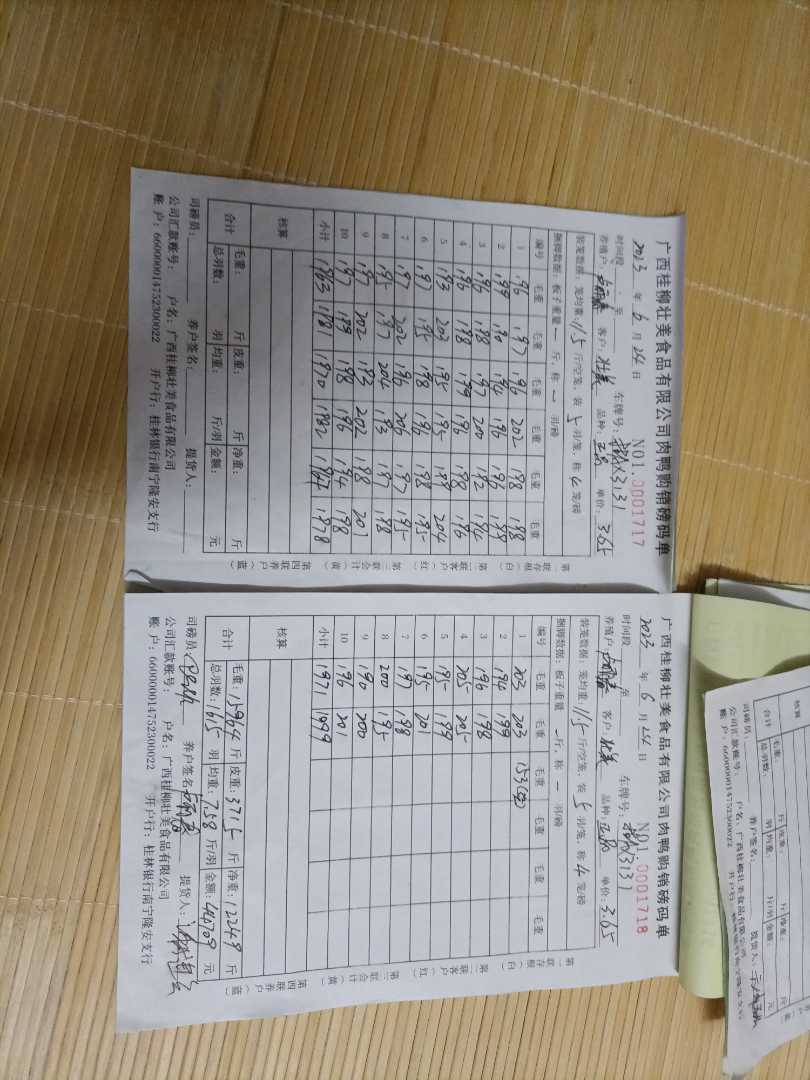 广西桂柳壮美食品有限公司肉鸭购销磅码单
NO1.0001717
2023年6月25日 车牌号:
时间段 至
养殖户: 客户:壮美 品种: 单价:3.65
装笼数据:笼均重:11.5斤/空笼,装5羽/笼,称4笼/磅
捆脚数据:板子重量一斤,称一羽/磅
编号 毛重 毛重 毛重 毛重 毛重 毛重
1 196 197 196 202 198 198
2 199 190 194 196 196 199
3 196 198 197 200 192 194
4 196 198 199 196 190 196
5 193 203 195 195 199 204
6 197 195 198 196 198 195
7 197 202 196 206 197 195
8 195 197 204 193 197 198
9 197 202 193 202 198 201
10 197 199 198 196 194 198
小计 1963 1981 1970 1982 1978
核算
合计 毛重: 斤 皮重: 斤 净重: 斤
总羽数: 羽 均重: 斤/羽 金额: 元
司磅员: 养户签名: 提货人:
公司汇款账号: 户名:广西桂柳壮美食品有限公司
账户:660000014752300022 开户行:桂林银行南宁隆安支行
第一联存根(白) 第二联客户(红) 第三联会计(黄) 第四联养户(蓝)
广西桂柳壮美食品有限公司肉鸭购销磅码单
NO1.0001718
2023年6月25日 车牌号:
时间段 至
养殖户: 客户:壮美 品种: 单价:3.65
装笼数据:笼均重:11.5斤/空笼,装5羽/笼,称4笼/磅
捆脚数据:板子重量一斤,称一羽/磅
编号 毛重 毛重 毛重 毛重 毛重 毛重
1 203 203 153
2 194 199
3 196 198
4 205 205
5 195 199
6 195 201
7 197 198
8 200 195
9 190 200
10 196 201
小计 1971 1999
核算
合计 毛重:15964斤 皮重:3715斤 净重:12249斤
总羽数:1615羽 均重:7.58斤/羽 金额:44709元
司磅员: 养户签名: 提货人:
公司汇款账号: 户名:广西桂柳壮美食品有限公司
账户:660000014752300022 开户行:桂林银行南宁隆安支行
第一联存根(白) 第二联客户(红) 第三联会计(黄) 第四联养户(蓝)
核算
合计 毛重: 斤 皮重: 斤
总羽数: 羽 均重: 斤/羽 金额: 元
司磅员: 养户签名: 提货人:
公司汇款账号: 户名:广西桂柳壮美食品有限公司
账户:660000014752300022 开户行:桂林银行南宁隆安支行